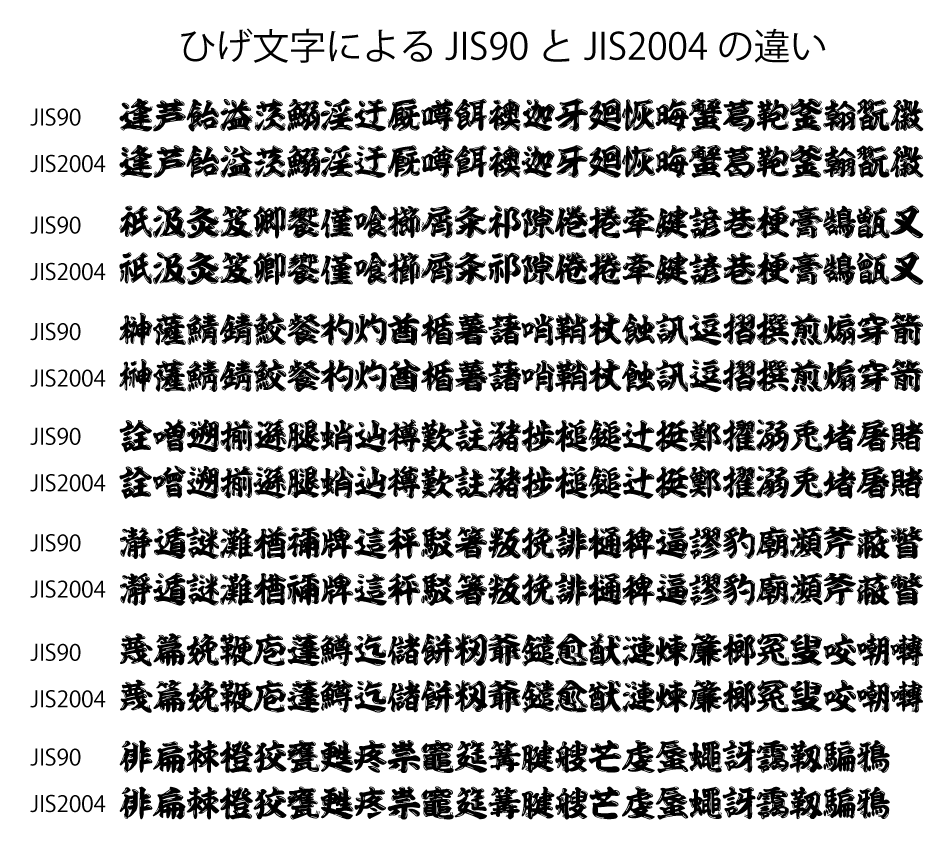 ひげ文字による JIS90 と JIS2004 の違い
JIS90 逢芦飴溢茨鰯淫迂厩噂餌襖迦牙廻恢晦蟹葛鞄釜翰翫徽
JIS2004 逢芦飴溢茨鰯淫迂厩噂餌襖迦牙廻恢晦蟹葛鞄釜翰翫徽
JIS90 祇汲灸笈卿饗僅喰櫛屑粂祁隙倦捲牽鍵諺巷梗膏鵠甑叉
JIS2004 祇汲灸笈卿饗僅喰櫛屑粂祁隙倦捲牽鍵諺巷梗膏鵠甑叉
JIS90 榊薩鯖錆鮫餐杓灼酋楯薯藷哨鞘杖蝕訊逗摺撰煎煽穿箭
JIS2004 榊薩鯖錆鮫餐杓灼酋楯薯藷哨鞘杖蝕訊逗摺撰煎煽穿箭
JIS90 詮噌遡揃遜腿蛸辿樽歎註瀦捗槌鎚辻挺鄭擢溺兎堵屠賭
JIS2004 詮噌遡揃遜腿蛸辿樽歎註瀦捗槌鎚辻挺鄭擢溺兎堵屠賭
JIS90 瀞遁謎灘楢禰牌這秤駁箸叛挽誹樋稗逼謬豹廟瀕斧蔽瞥
JIS2004 瀞遁謎灘楢禰牌這秤駁箸叛挽誹樋稗逼謬豹廟瀕斧蔽瞥
JIS90 蔑篇娩鞭庖蓬鱒迄儲餅籾爺鑓愈猷漣煉簾榔冤叟咬嘲囀
JIS2004 蔑篇娩鞭庖蓬鱒迄儲餅籾爺鑓愈猷漣煉簾榔冤叟咬嘲囀
JIS90 徘扁棘橙狡甕甦疼祟竈筵篝腱艘芒虔蜃蠅訝靄靱騙鴉
JIS2004 徘扁棘橙狡甕甦疼祟竈筵篝腱艘芒虔蜃蠅訝靄靱騙鴉